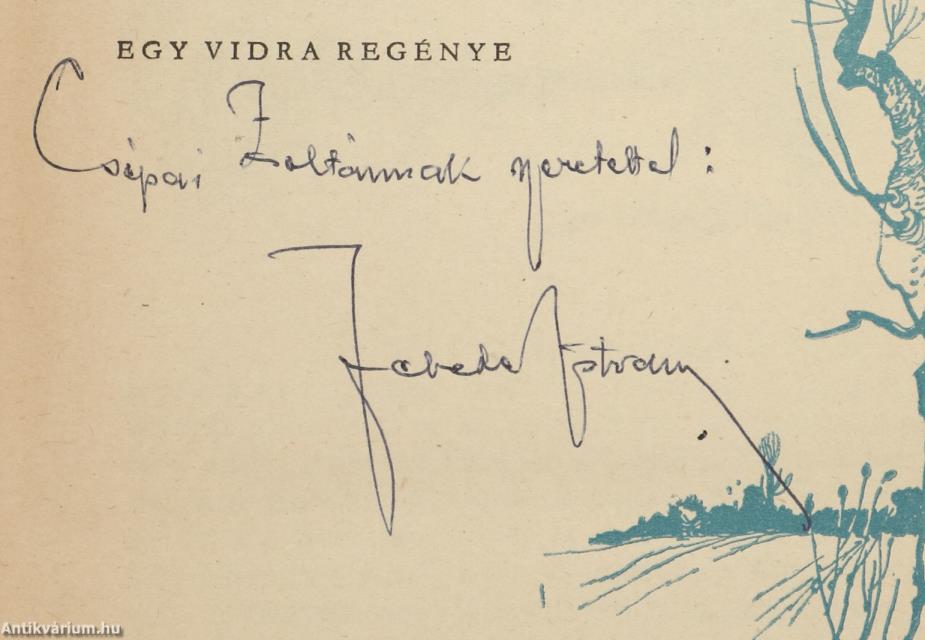 EGY VIDRA REGÉNYE
Csépai Zoltánnak szeretettel:
Fekete István
Antikvárium.hu